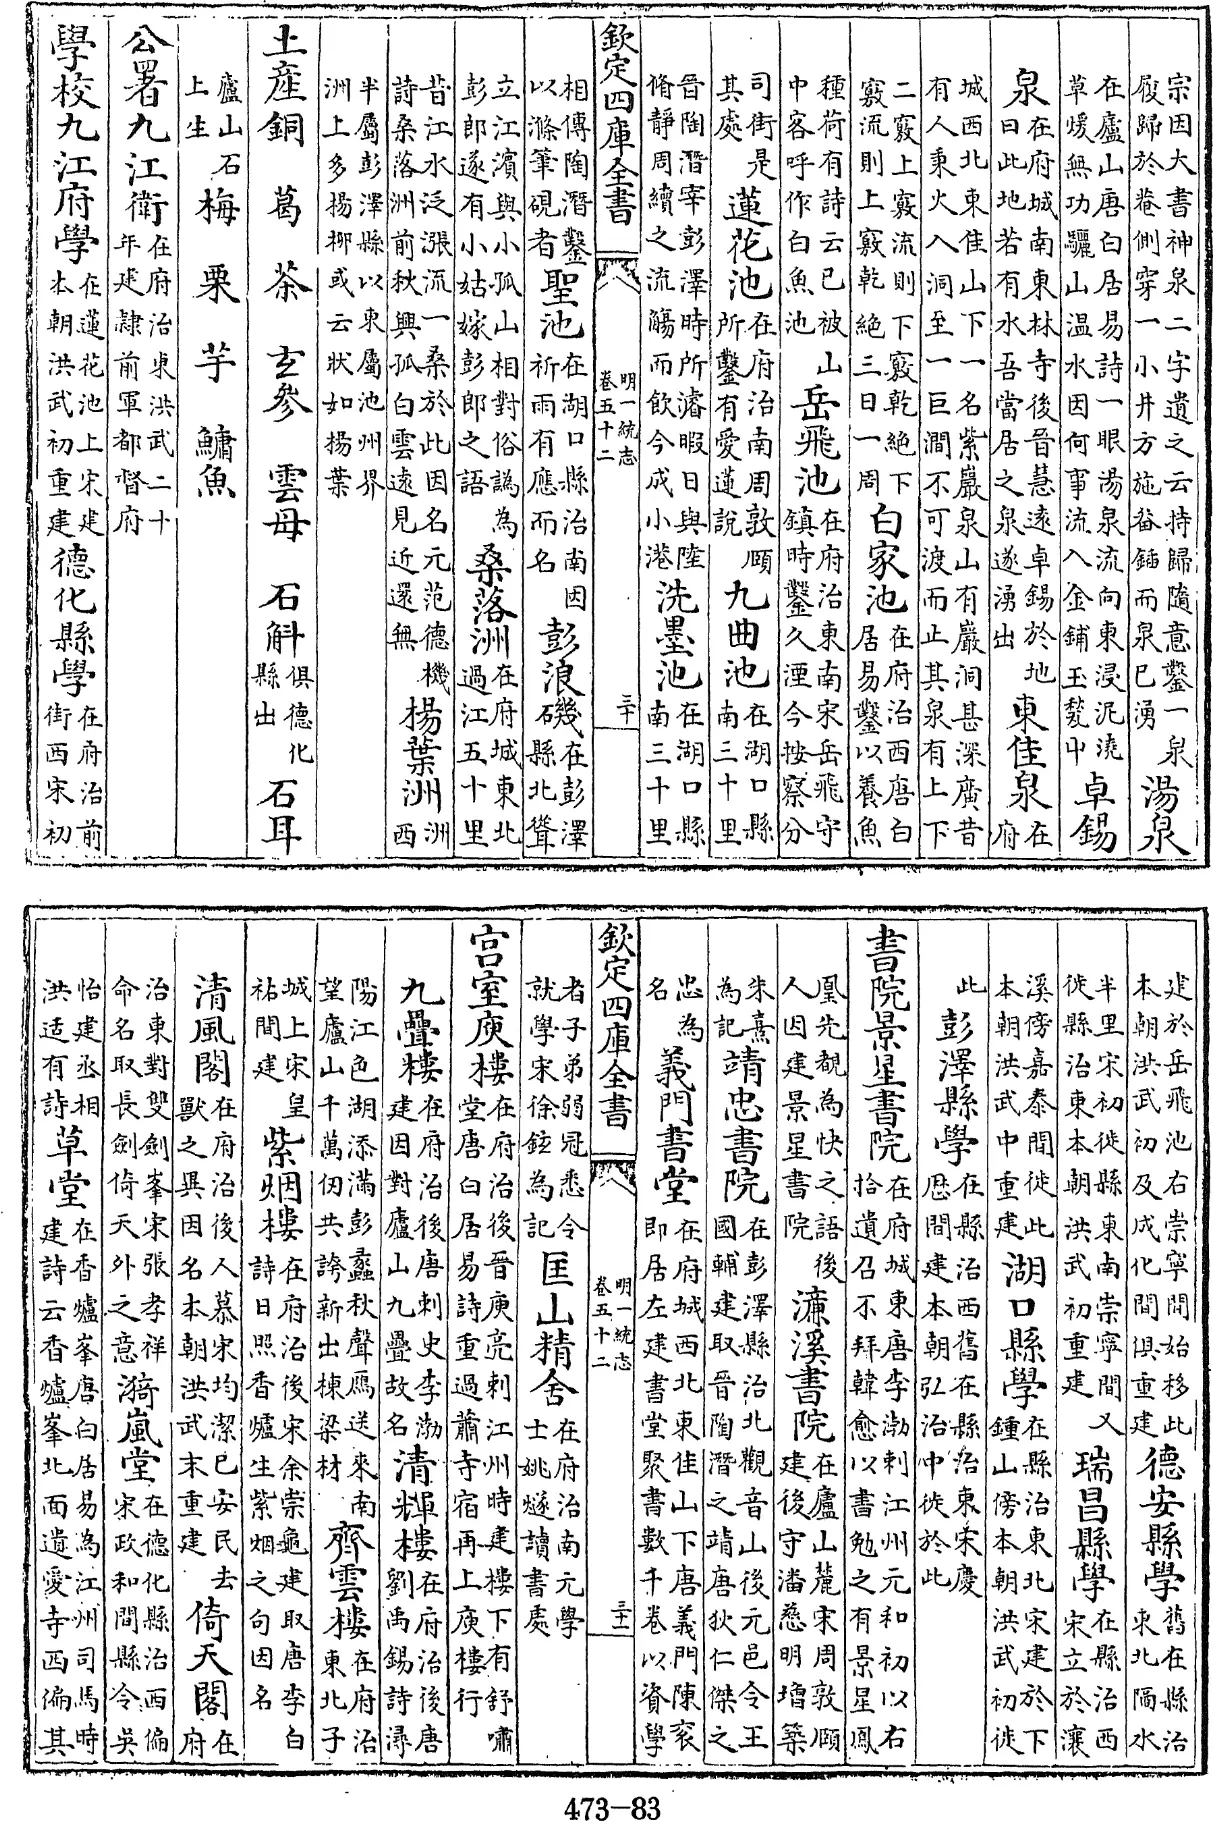 宗因大書神泉二字遺之云持歸隨意鑿一泉履歸於菴側穿一小井方施畚鍤而泉已湧湯泉
在廬山唐白居易詩一眼湯泉流向東浸泥澆草煖無功驪山温水因何事流入金鋪玉甃中卓錫
泉在府城南東林寺後晉慧遠卓錫於地曰此地若有水吾當居之泉遂湧出東佳泉在府
城西北東佳山下一名紫巖泉山有巖洞甚深廣昔有人秉火入洞至一巨澗不可渡而止其泉有上下
二竅上竅流則下竅乾絶下竅流則上竅乾絶三日一周白家池在府治西唐白居易鑿以養魚
種荷有詩云已被山中客呼作白魚池岳飛池在府治東南宋岳飛守鎮時鑿久湮今按察分
司街是其處蓮花池在府治南周敦頤所鑿有愛蓮說九曲池在湖口縣南三十里
晉陶潛宰彭澤時所濬暇日與陸脩靜周續之流觴而飲今成小港洗墨池在湖口縣南三十里
欽定四庫全書 明一統志卷五十二 三十
相傳陶潛鑿以滌筆硯者聖池在湖口縣治南因祈雨有應而名彭浪磯在彭澤縣北聳
立江濱與小孤山相對俗譌為彭郎遂有小姑嫁彭郎之語桑落洲在府城東北過江五十里
昔江水泛漲流一桑於此因名元范德機詩桑落洲前秋興孤白雲遠見近還無楊葉洲洲西
半屬彭澤縣以東屬池州界洲上多楊柳或云狀如楊葉
土産銅 葛 茶 玄參 雲母 石斛俱德化縣出 石耳
廬山石上生 梅 栗 芋 鱅魚
公署九江衛在府治東洪武二十年建隷前軍都督府
學校九江府學在蓮花池上宋建本朝洪武初重建德化縣學在府治前街西宋初
建於岳飛池右崇寧間始移此本朝洪武初及成化間俱重建德安縣學舊在縣治東北隔水
半里宋初徙縣東南崇寧間又徙縣治東本朝洪武初重建瑞昌縣學在縣治西宋立於瀼
溪傍嘉泰間徙此本朝洪武中重建湖口縣學在縣治東北宋建於下鍾山傍本朝洪武初徙
此彭澤縣學在縣治西舊在縣治東宋慶厯間建本朝弘治中徙於此
書院景星書院在府城東唐李渤刺江州元和初以右拾遺召不拜韓愈以書勉之有景星鳳
凰先覩為快之語後人因建景星書院濂溪書院在廬山麓宋周敦頤建後守潘慈明增築
朱熹為記靖忠書院在彭澤縣治北觀音山後元邑令王國輔建取晉陶潛之靖唐狄仁傑之
忠為名義門書堂在府城西北東佳山下唐義門陳衮即居左建書堂聚書數千卷以資學
欽定四庫全書 明一統志卷五十二 三十一
者子弟弱冠悉令就學宋徐鉉為記匡山精舍在府治南元學士姚燧讀書處
宫室庾樓在府治後晉庾亮刺江州時建樓下有舒嘯堂唐白居易詩重過蕭寺宿再上庾樓行
九疊樓在府治後唐刺史李渤建因對廬山九疊故名清輝樓在府治後唐劉禹錫詩潯
陽江色湖添滿彭蠡秋聲鴈送來南望廬山千萬仞共誇新出棟梁材齊雲樓在府治東北子
城上宋皇祐間建紫烟樓在府治後宋余崇龜建取唐李白詩日照香爐生紫烟之句因名
清風閣在府治後人慕宋均潔已安民去獸之異因名本朝洪武末重建倚天閣在府
治東對雙劍峯宋張孝祥命名取長劍倚天外之意漪嵐堂在德化縣治西偏宋政和間縣令吳
怡建丞相洪适有詩草堂在香爐峯唐白居易為江州司馬時建詩云香爐峯北面遺愛寺西偏其
473-83